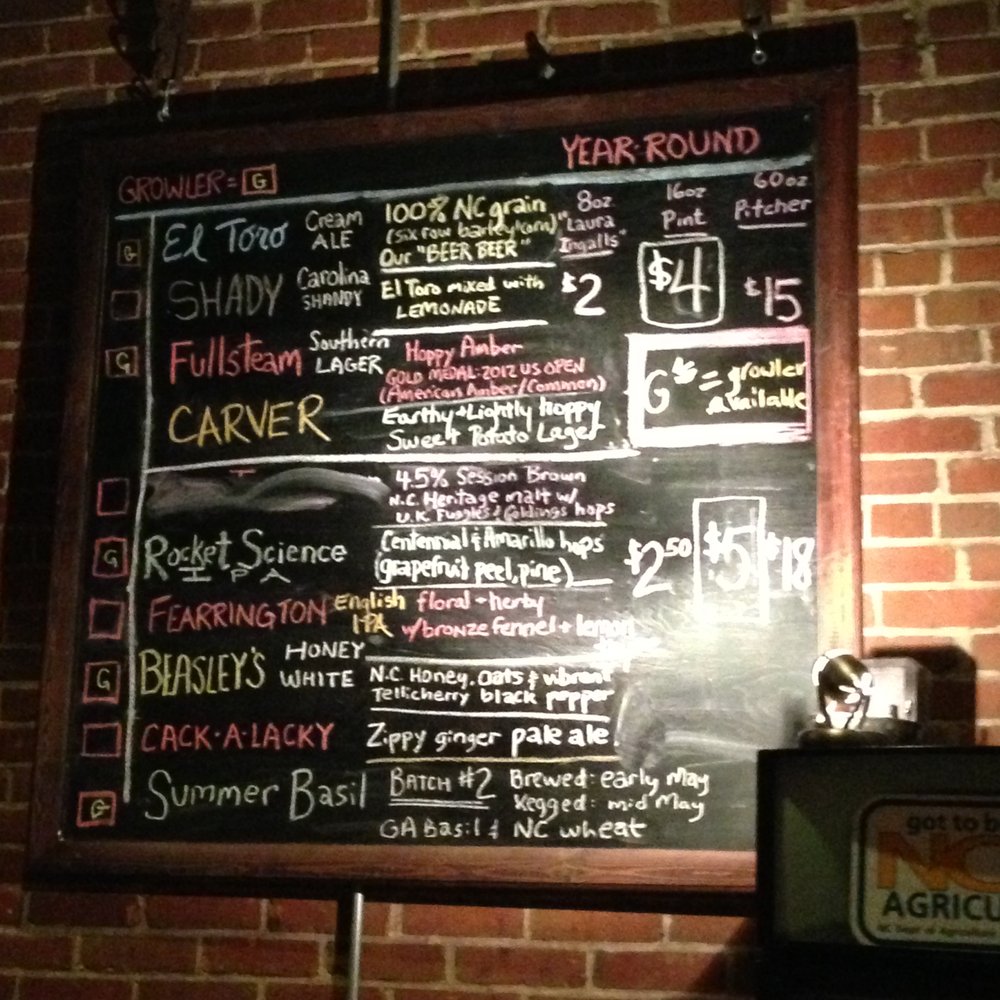 YEAR-ROUND
GROWLER = G
8oz "Laura Ingalls"
16oz Pint
60oz Pitcher
G El Toro Cream ALE
100% NC grain
(six row barley/corn)
Our "BEER BEER"
SHADY Carolina SHANDY
El Toro mixed with
LEMONADE
$2 $4 $15
G Fullsteam Southern LAGER
Hoppy Amber
GOLD MEDAL: 2012 US OPEN
(American Amber/Common)
G = growler
available
CARVER
Earthy + Lightly hoppy
Sweet Potato Lager
4.5% Session Brown
N.C. Heritage malt w/
U.K. Fuggles & Goldings hops
G Rocket Science
IPA
Centennial & Amarillo hops
(grapefruit peel, pine)
$2.50 $5 $18
FEARRINGTON English IPA
floral + herby
w/bronze fennel + lemon
G BEASLEY'S HONEY WHITE
N.C. Honey, Oats & vibrant
Tellicherry black pepper
CACK-A-LACKY
Zippy ginger pale ale.
G Summer Basil
BATCH #2 Brewed: early May
Kegged: mid May
GA Basil & NC wheat
got to b
NC
AGRICU
NC Dept of Agriculture